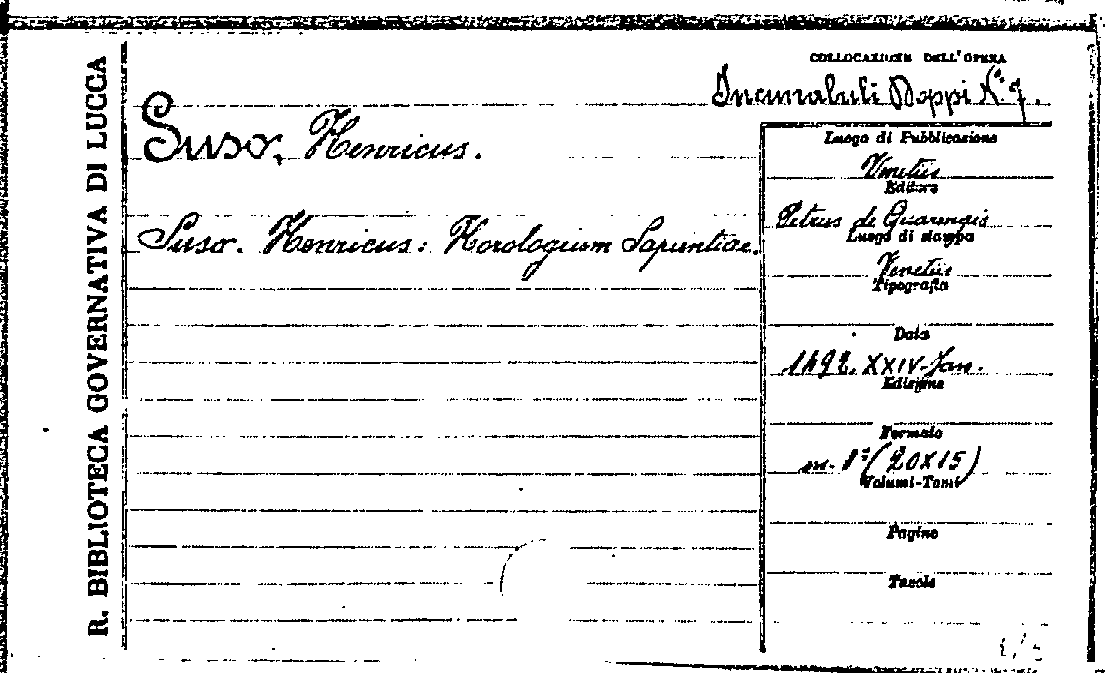 R. BIBLIOTECA GOVERNATIVA DI LUCCA
COLLOCAZIONE DELL'OPERA
Incunaboli Doppi N.º 7.
Suso, Henricus.
Suso. Henricus: Horologium Sapientiae.
Luogo di Pubblicazione
Venetiis
Editore
Petrus de Quarengis
Luogo di stampa
Venetiis
Tipografia
Data
1492. XXIV-Jan.
Edizione
Formato
m. 8º (20X15)
Volumi-Tomi
Pagine
Tavole